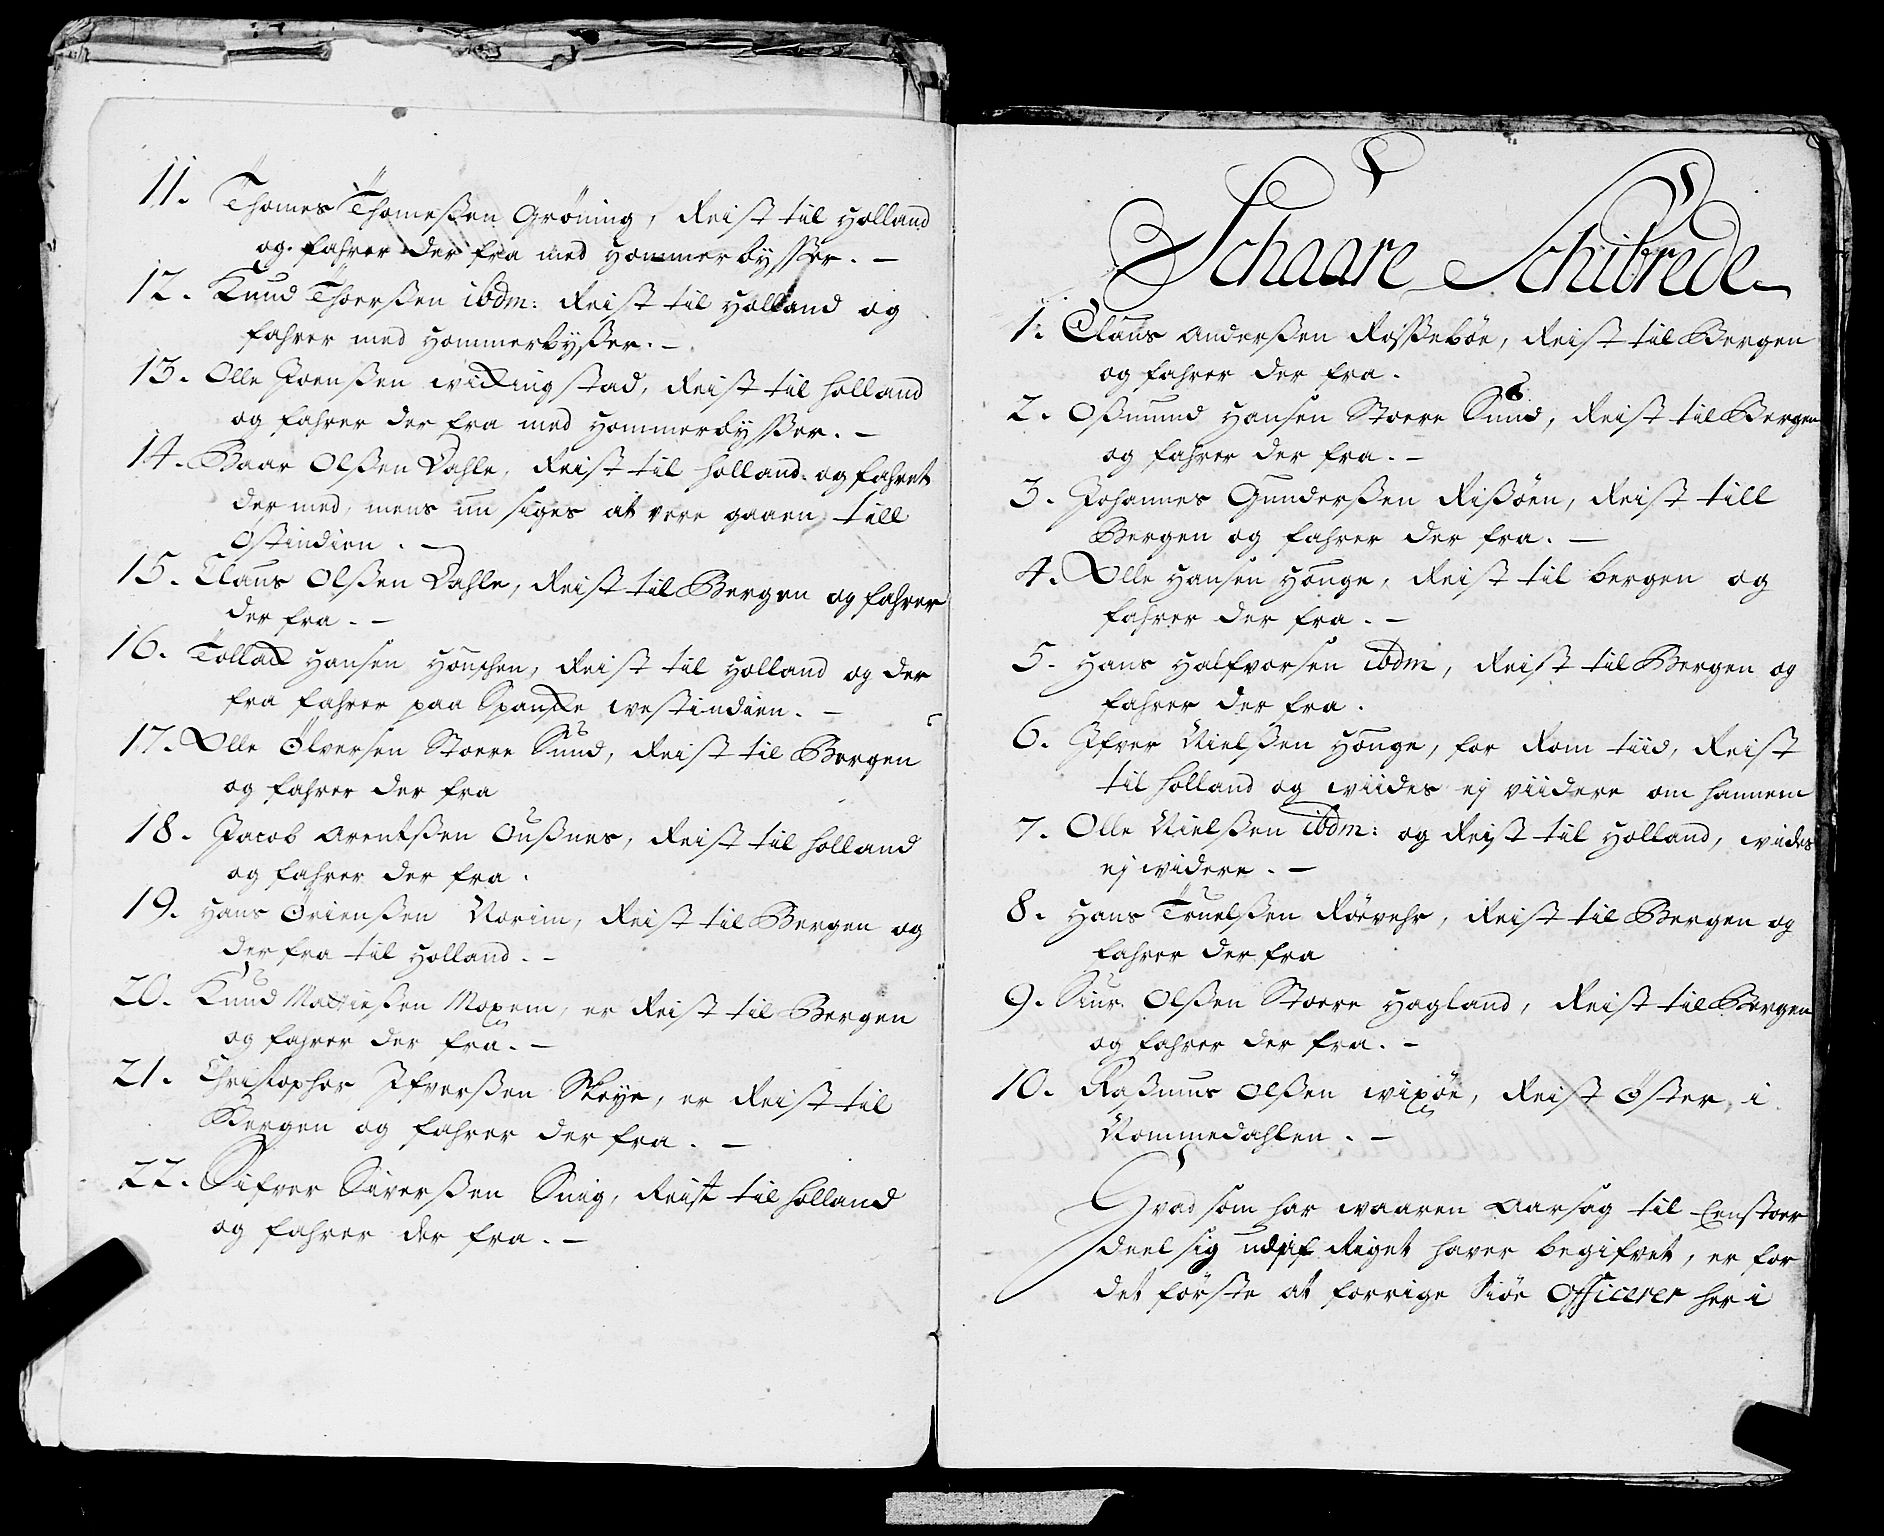 11. Thomes Thomesßen Grøning, Reist til Holland
og fahrer der fra med Hommerbysser. –
12. Knud Thoersßen ibdm: Reist til Holland og
fahrer med Hommerbysser. –
13. Olle Joensßen wickingstad, Reist til Holland
og fahrer der fra med Hommerbysser. –
14. Baar Olßen Dahle, Reist til Holland og fahret
der med, mens nu siges at vere gaaen till
Ostindien. –
15. Claus Olßen Dahle, Reist til Bergen og fahrer
der fra. –
16. Tollack Hansen Houschen, Reist til Holland og der
fra fahrer paa Spanske westindien. –
17. Olle Ølversen Stoere Sund, Reist til Bergen
og fahrer der fra
18. Jacob Arentsßen Oußnes, Reist til Holland
og fahrer der fra.
19. Hans Øriensßen Norim, Reist til Bergen og
der fra til Holland. –
20. Knud Mattiesßen Moxem, er Reist til Bergen
og fahrer der fra. –
21. Christopher Ifversßen Skeye, er Reist til
Bergen og fahrer der fra. –
22. Sifver Siversßen Snig, Reist til Holland
og fahrer der fra. –
Schaare Schibrede
1. Claus Andersßen Rossebøe, Reist til Bergen
og fahrer der fra.
2. Oßmund Hansen Stoere Sund, Reist til Bergen
og fahrer der fra. –
3. Johannes Gundersßen Rißøen, Reist till
Bergen og fahrer der fra. –
4. Olle Hansen Houge, Reist til bergen og
fahrer der fra. –
5. Hans Halfvorsen ibdm, Reist til Bergen og
fahrer der fra.
6. Ifver Nielßen Houge, for Rom tiid, Reist
til Holland og wiides ej viidere om hannem
7. Olle Nielßen ibdm: og Reist til Holland, wiides
ej widere. –
8. Hans Truelßen Røevehr, Reist til Bergen og
fahrer der fra
9. Siur Olßen Stoere Hagland, Reist til Bergen
og fahrer der fra. –
10. Raßmus Olßen wixøe, Reist Øster i
Nommedahlen. –
Hvad som har waaren Aarsag til Eenstoer
deel sig udaf Riget haver begifvet, er for
det første at forrige Siøe Officerer her i